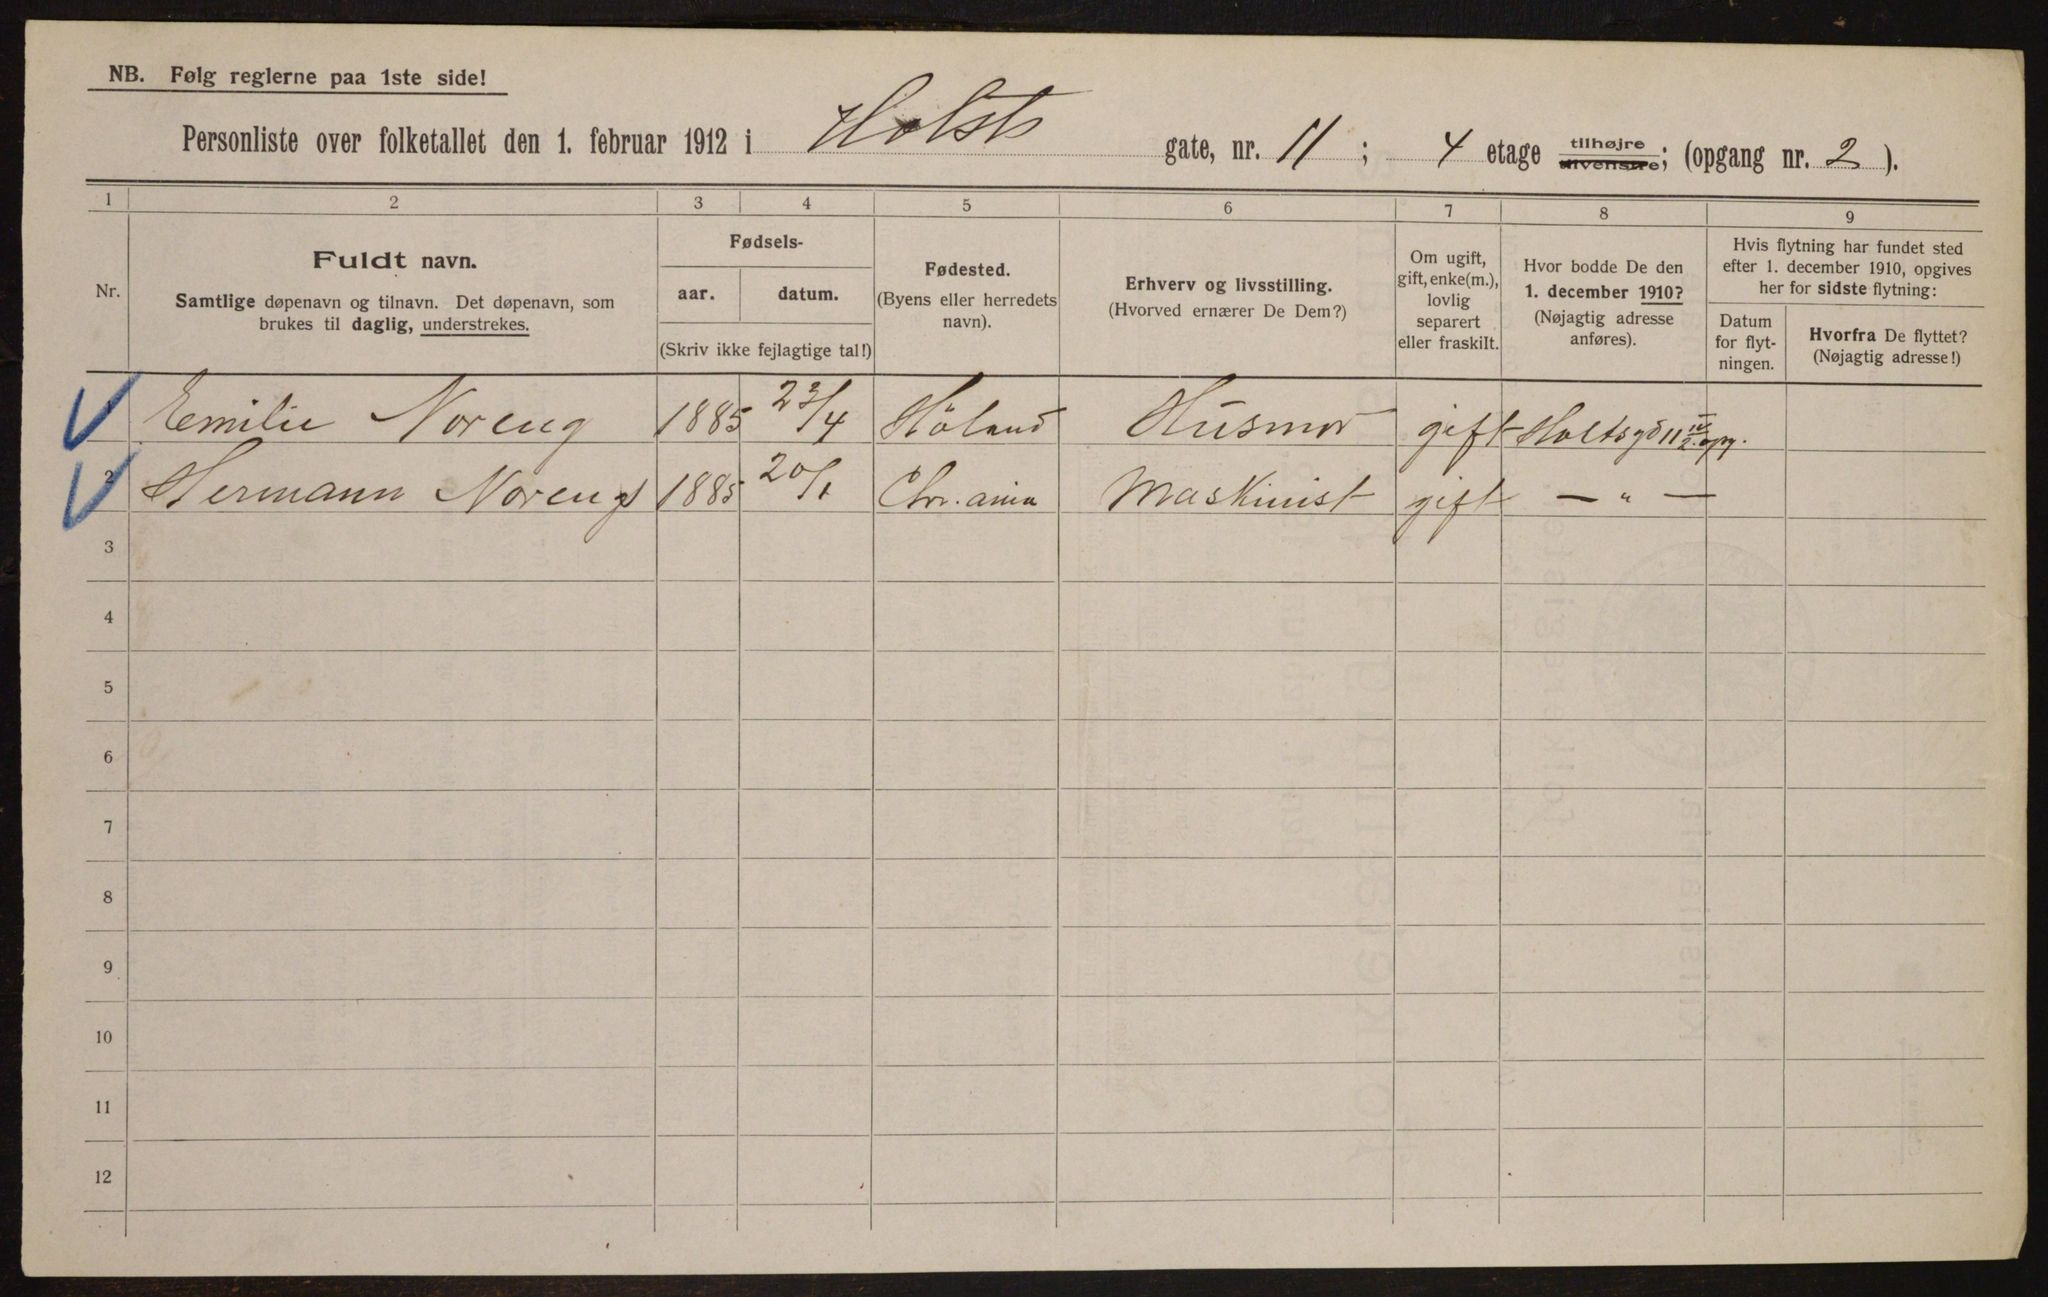 NB. Følg reglerne paa 1ste side!
Personliste over folketallet den 1. februar 1912 i Holsts gate, nr. 11; 4 etage tilhøjre tilvenstre; (opgang nr. 2).
1 2 3 4 5 6 7 8 9
Nr.
Fuldt navn.
Samtlige døpenavn og tilnavn. Det døpenavn, som
brukes til daglig, understrekes.
Fødsels-
aar. datum.
(Skriv ikke fejlagtige tal!)
Fødested.
(Byens eller herredets
navn).
Erhverv og livsstilling.
(Hvorved ernærer De Dem?)
Om ugift,
gift, enke(m.),
lovlig
separert
eller fraskilt.
Hvor bodde De den
1. december 1910?
(Nøjagtig adresse
anføres).
Hvis flytning har fundet sted
efter 1. december 1910, opgives
her for sidste flytning:
Datum
for flyt-
ningen.
Hvorfra De flyttet?
(Nøjagtig adresse!)
Emilie Noreng 1885 23/4 Höland Husmor gift Holtsgd 11 IV 2. opg.
2 Hermann Noreng 1885 20/1 Chr.ania Maskinist gift — „ —
3
4
5
6
7
8
9
10
11
12